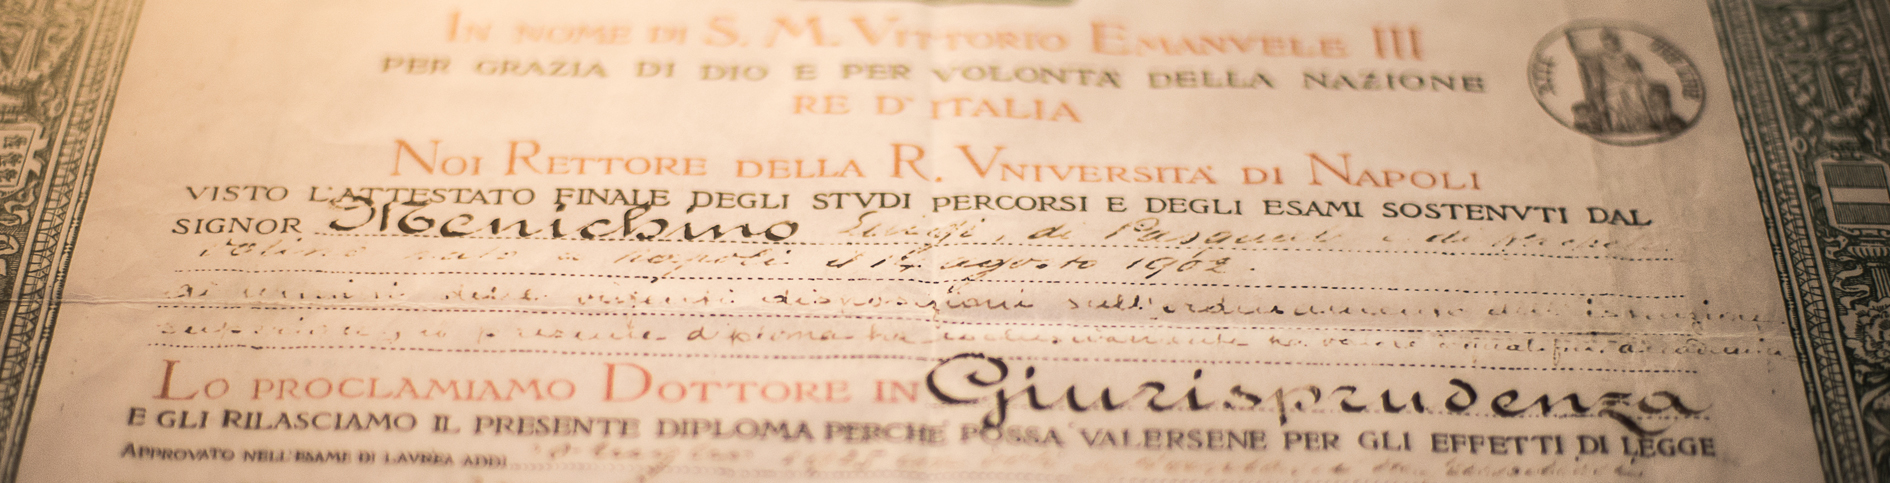 IN NOME DI S. M. VITTORIO EMANVELE III
PER GRAZIA DI DIO E PER VOLONTÀ DELLA NAZIONE
RE D'ITALIA
NOI RETTORE DELLA R. VNIVERSITÀ DI NAPOLI
VISTO L'ATTESTATO FINALE DEGLI STVDI PERCORSI E DEGLI ESAMI SOSTENVTI DAL
SIGNOR Menichino Luigi, di Pasquale e di
nato a Napoli il 14 agosto 1902.
ai sensi delle vigenti disposizioni sull'ordinamento dell'istruzione
superiore, il presente diploma ha esclusivamente valore di qualifica accademica
LO PROCLAMIAMO DOTTORE IN Giurisprudenza
E GLI RILASCIAMO IL PRESENTE DIPLOMA PERCHÈ POSSA VALERSENE PER GLI EFFETTI DI LEGGE
APPROVATO NELL'ESAME DI LAVREA ADDI